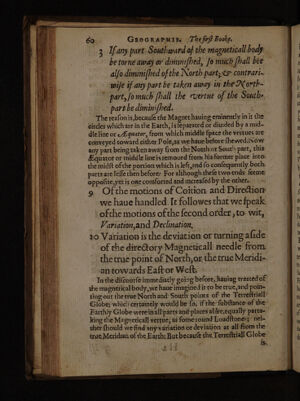 60 GEOGRAPHIE. The first Booke.
3 If any part Southward of the magneticall body
be torne away or diminished, so much shall bee
also diminished of the North part; & contrari-
wise if any part be taken away in the North-
part, so much shall the vertue of the South-
part be diminished.
The reason is, because the Magnet having eminently in it the
circles which are in the Earth, is separated or divided by a mid-
dle line or Æquator, from which middle space the vertues are
conveyed toward either Pole, as we haue before shewed. Now
any part being taken away from the North or South part, this
Æquator or middle line is remoued from his former place into
the midst of the portion which is left, and so consequently both
parts are lesse then before: For although these two ends seeme
opposite, yet is one comforted and increased by the other.
9 Of the motions of Coition and Direction
we haue handled. It followes that we speak
of the motions of the second order, to wit,
Variation, and Declination.
10 Variation is the deviation or turning aside
of the directory Magneticall needle from
the true point of North, or the true Meridi-
an towards East or West.
In the discourse immediatly going before, hauing treated of
the magneticall body, we haue imagined it to be true, and poin-
ting out the true North and South points of the Terrestriall
Globe; which certainely would be so, if the substance of the
Earthly Globe were in all parts and places alike, equally parta-
king the Magneticall vertue, as some round Loadstone; nei-
ther should we find any variation or deviation at all from the
true Meridian of the Earth: But because the Terrestriall Globe
is